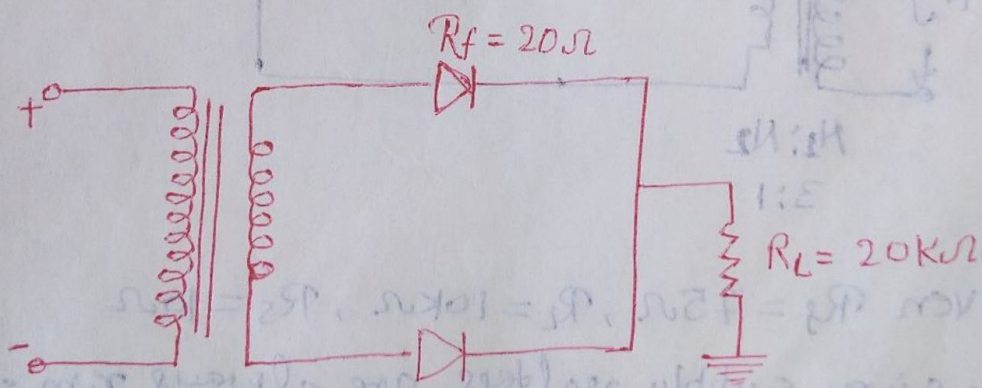 Rf = 20Ω
+
RL = 20KΩ
-